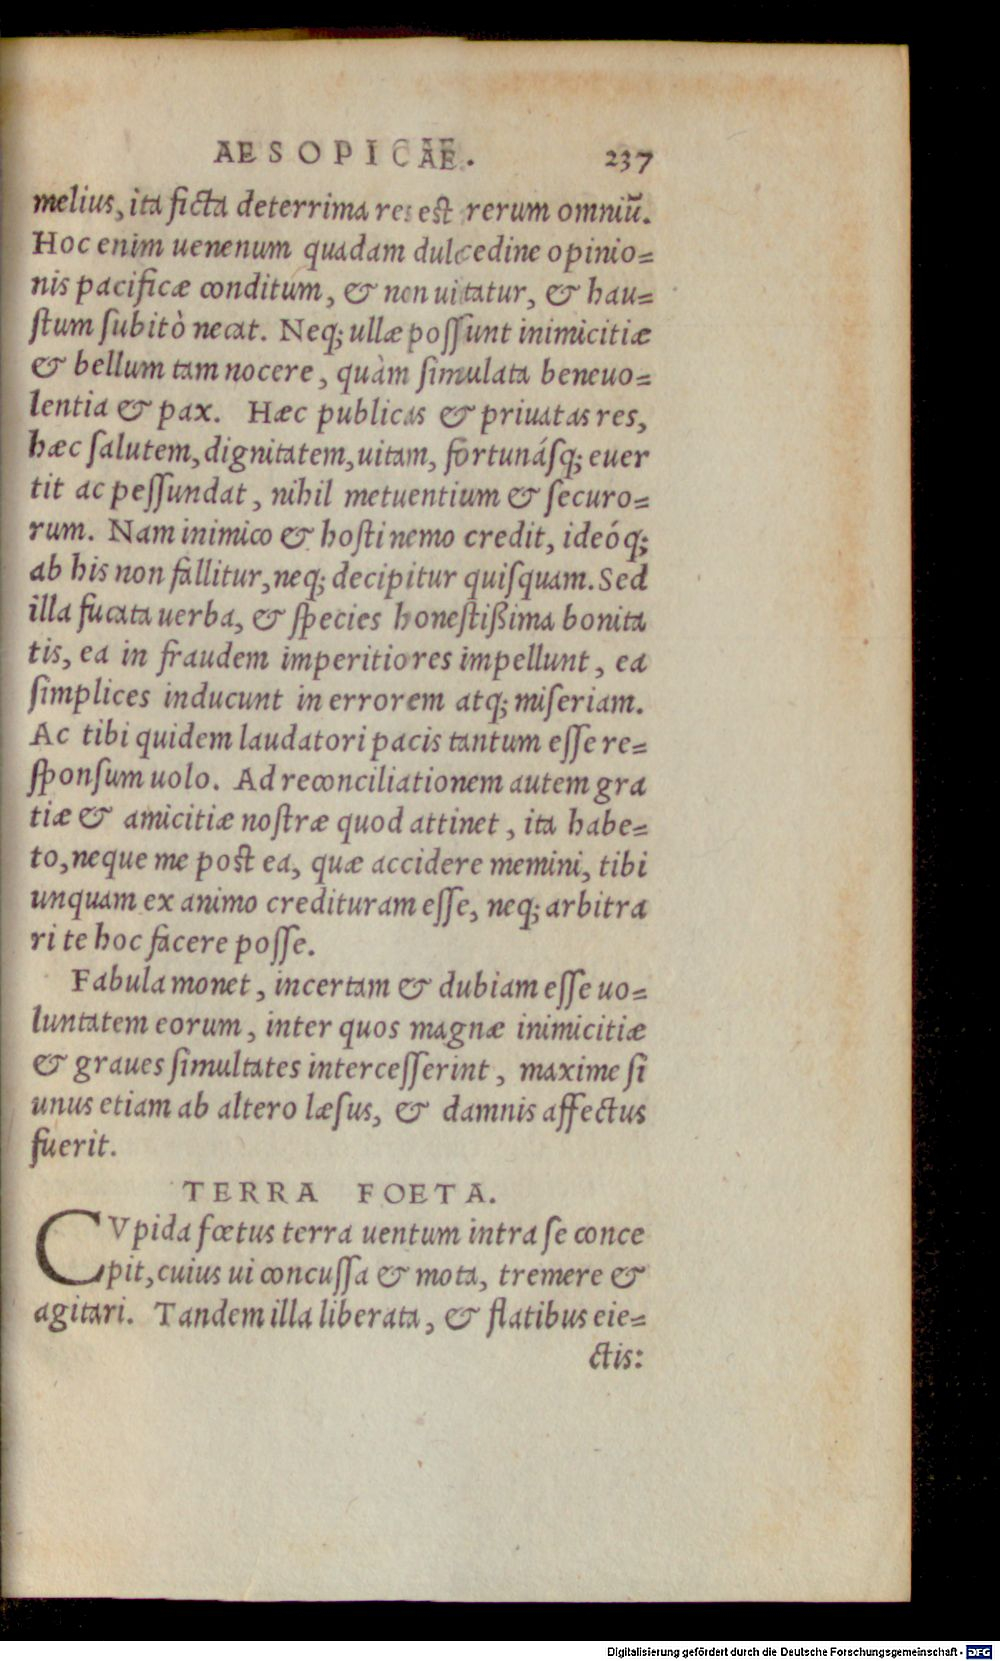 AESOPICAE. 237
melius, ita ficta deterrima res est rerum omniũ.
Hoc enim uenenum quadam dulcedine opinio=
nis pacificæ conditum, & non uitatur, & hau=
ſtum ſubitò necat. Neq; ullæ poſſunt inimicitiæ
& bellum tam nocere, quàm ſimulata beneuo=
lentia & pax. Hæc publicas & priuatas res,
hæc ſalutem, dignitatem, uitam, fortunáſq; euer
tit ac peſſundat, nihil metuentium & ſecuro=
rum. Nam inimico & hoſti nemo credit, ideóq;
ab his non fallitur, neq; decipitur quiſquam. Sed
illa fucata uerba, & ſpecies honeſtißima bonita
tis, ea in fraudem imperitiores impellunt, ea
ſimplices inducunt in errorem atq; miſeriam.
Ac tibi quidem laudatori pacis tantum eſſe re=
ſponſum uolo. Ad reconciliationem autem gra
tiæ & amicitiæ noſtræ quod attinet, ita habe=
to, neque me poſt ea, quæ accidere memini, tibi
unquam ex animo credituram eſſe, neq; arbitra
ri te hoc facere poſſe.
Fabula monet, incertam & dubiam eſſe uo=
luntatem eorum, inter quos magnæ inimicitiæ
& graues ſimultates interceſſerint, maxime ſi
unus etiam ab altero læſus, & damnis affectus
fuerit.
TERRA FOETA.
CVpida fœtus terra uentum intra ſe conce
pit, cuius ui concuſſa & mota, tremere &
agitari. Tandem illa liberata, & flatibus eie=
ctis:
Digitalisierung gefördert durch die Deutsche Forschungsgemeinschaft - DFG